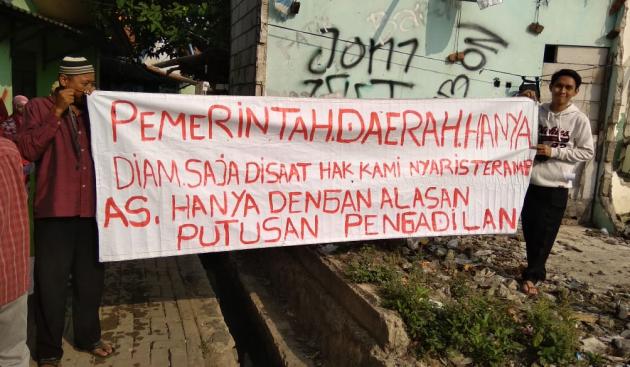 PEMERINTAH.DAERAH.HANYA
DIAM.SAJA DISAAT HAK KAMI NYARIS TERAMP
AS. HANYA DENGAN ALASAN
PUTUSAN PENGADILAN